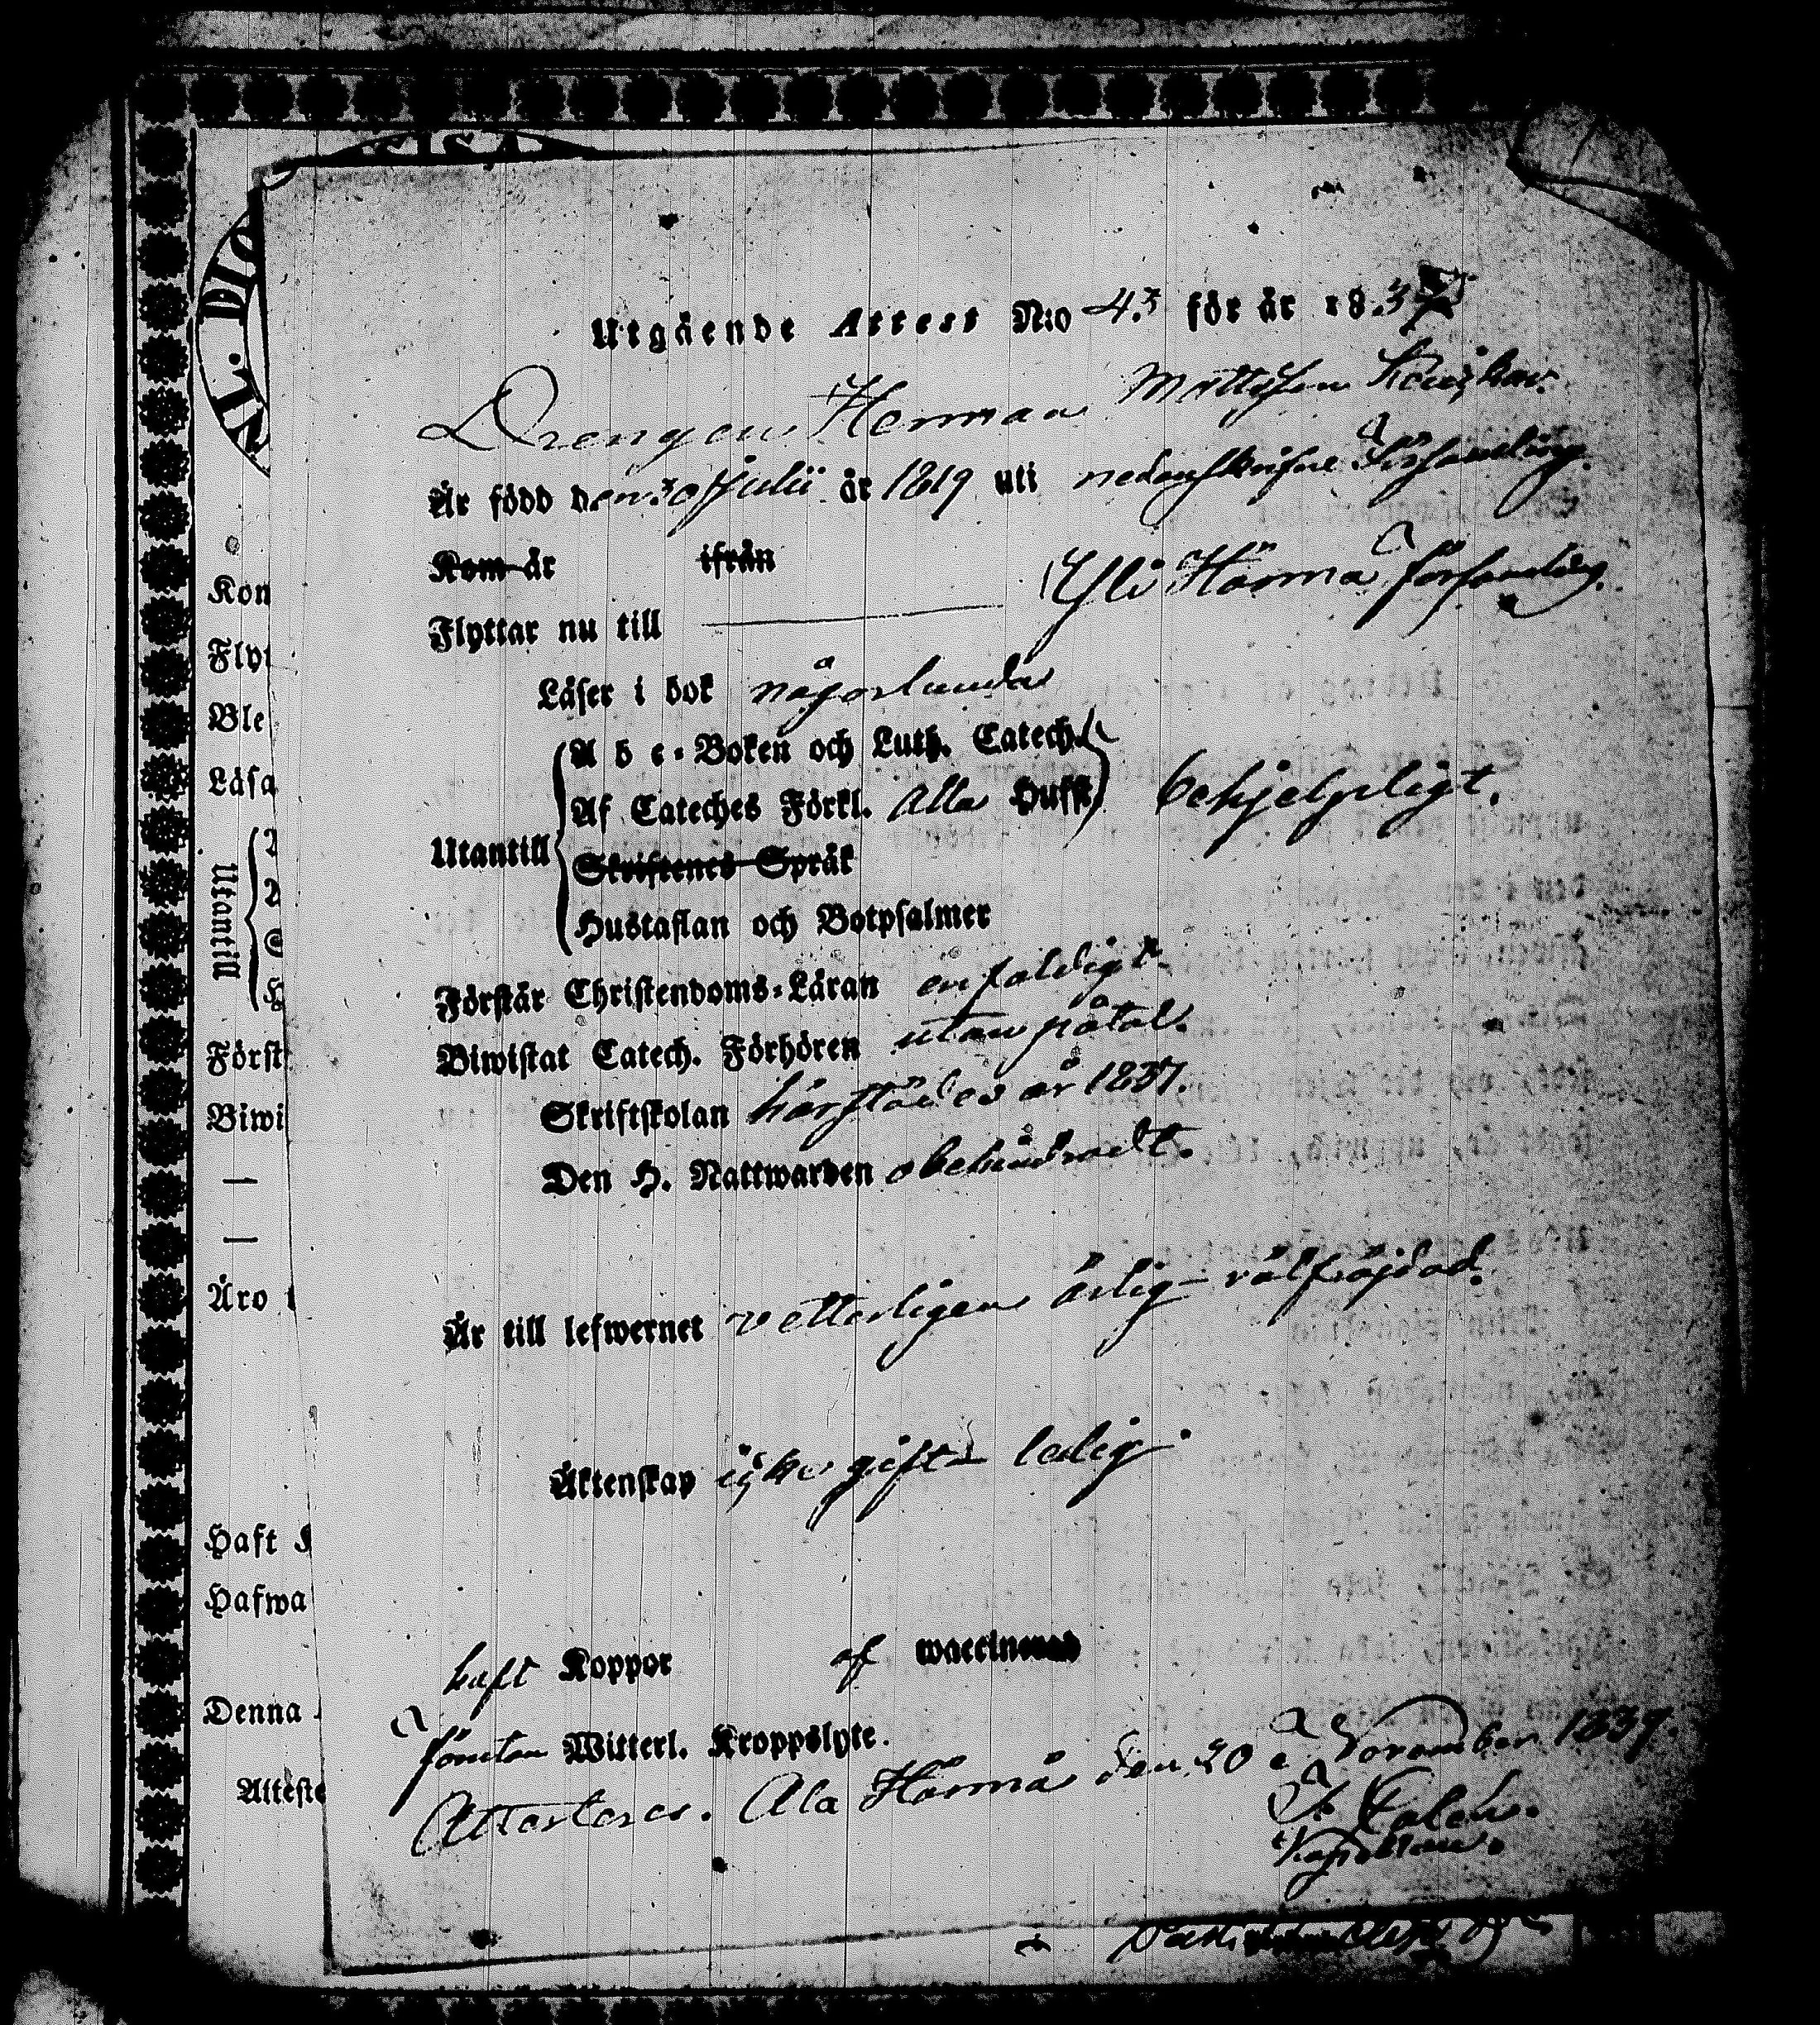 NL. DIO
Utgående Attest N:o 43 för år 183
Drengen Herman Mattsson
Är född den 30 Julii år 1819 uti församling.
Kom år ifrån
Flyttar nu till Yli Härmä församling.
Läser i bok någorlunda
Utantill
A b c-Boken och Luth. Catech.
Af Cateches Förkl. Alla Hufst. behjelpligt.
Skriftenes Språk
Hustaflan och Botpsalmer
Förstår Christendoms-Läran enfaldigt
Biwistat Catech. Förhören utan påtal.
Skriftskolan härstädes år 1837.
Den H. Nattwarden obehindradt.
Är till lefwernet vetterligen ärlig välfräjdad.
Äktenskap icke gift ledig
haft Koppor af waccinerad
förutan Witterl. Kroppslyte.
Attesteres. Ala Härmä den 20 November 1839.
Kapellan.
Kom
Flyt
Ble
Läsa
Utantill
Först
Biwi
—
—
Äro
Haft
Hafwa
Denna
Atteste